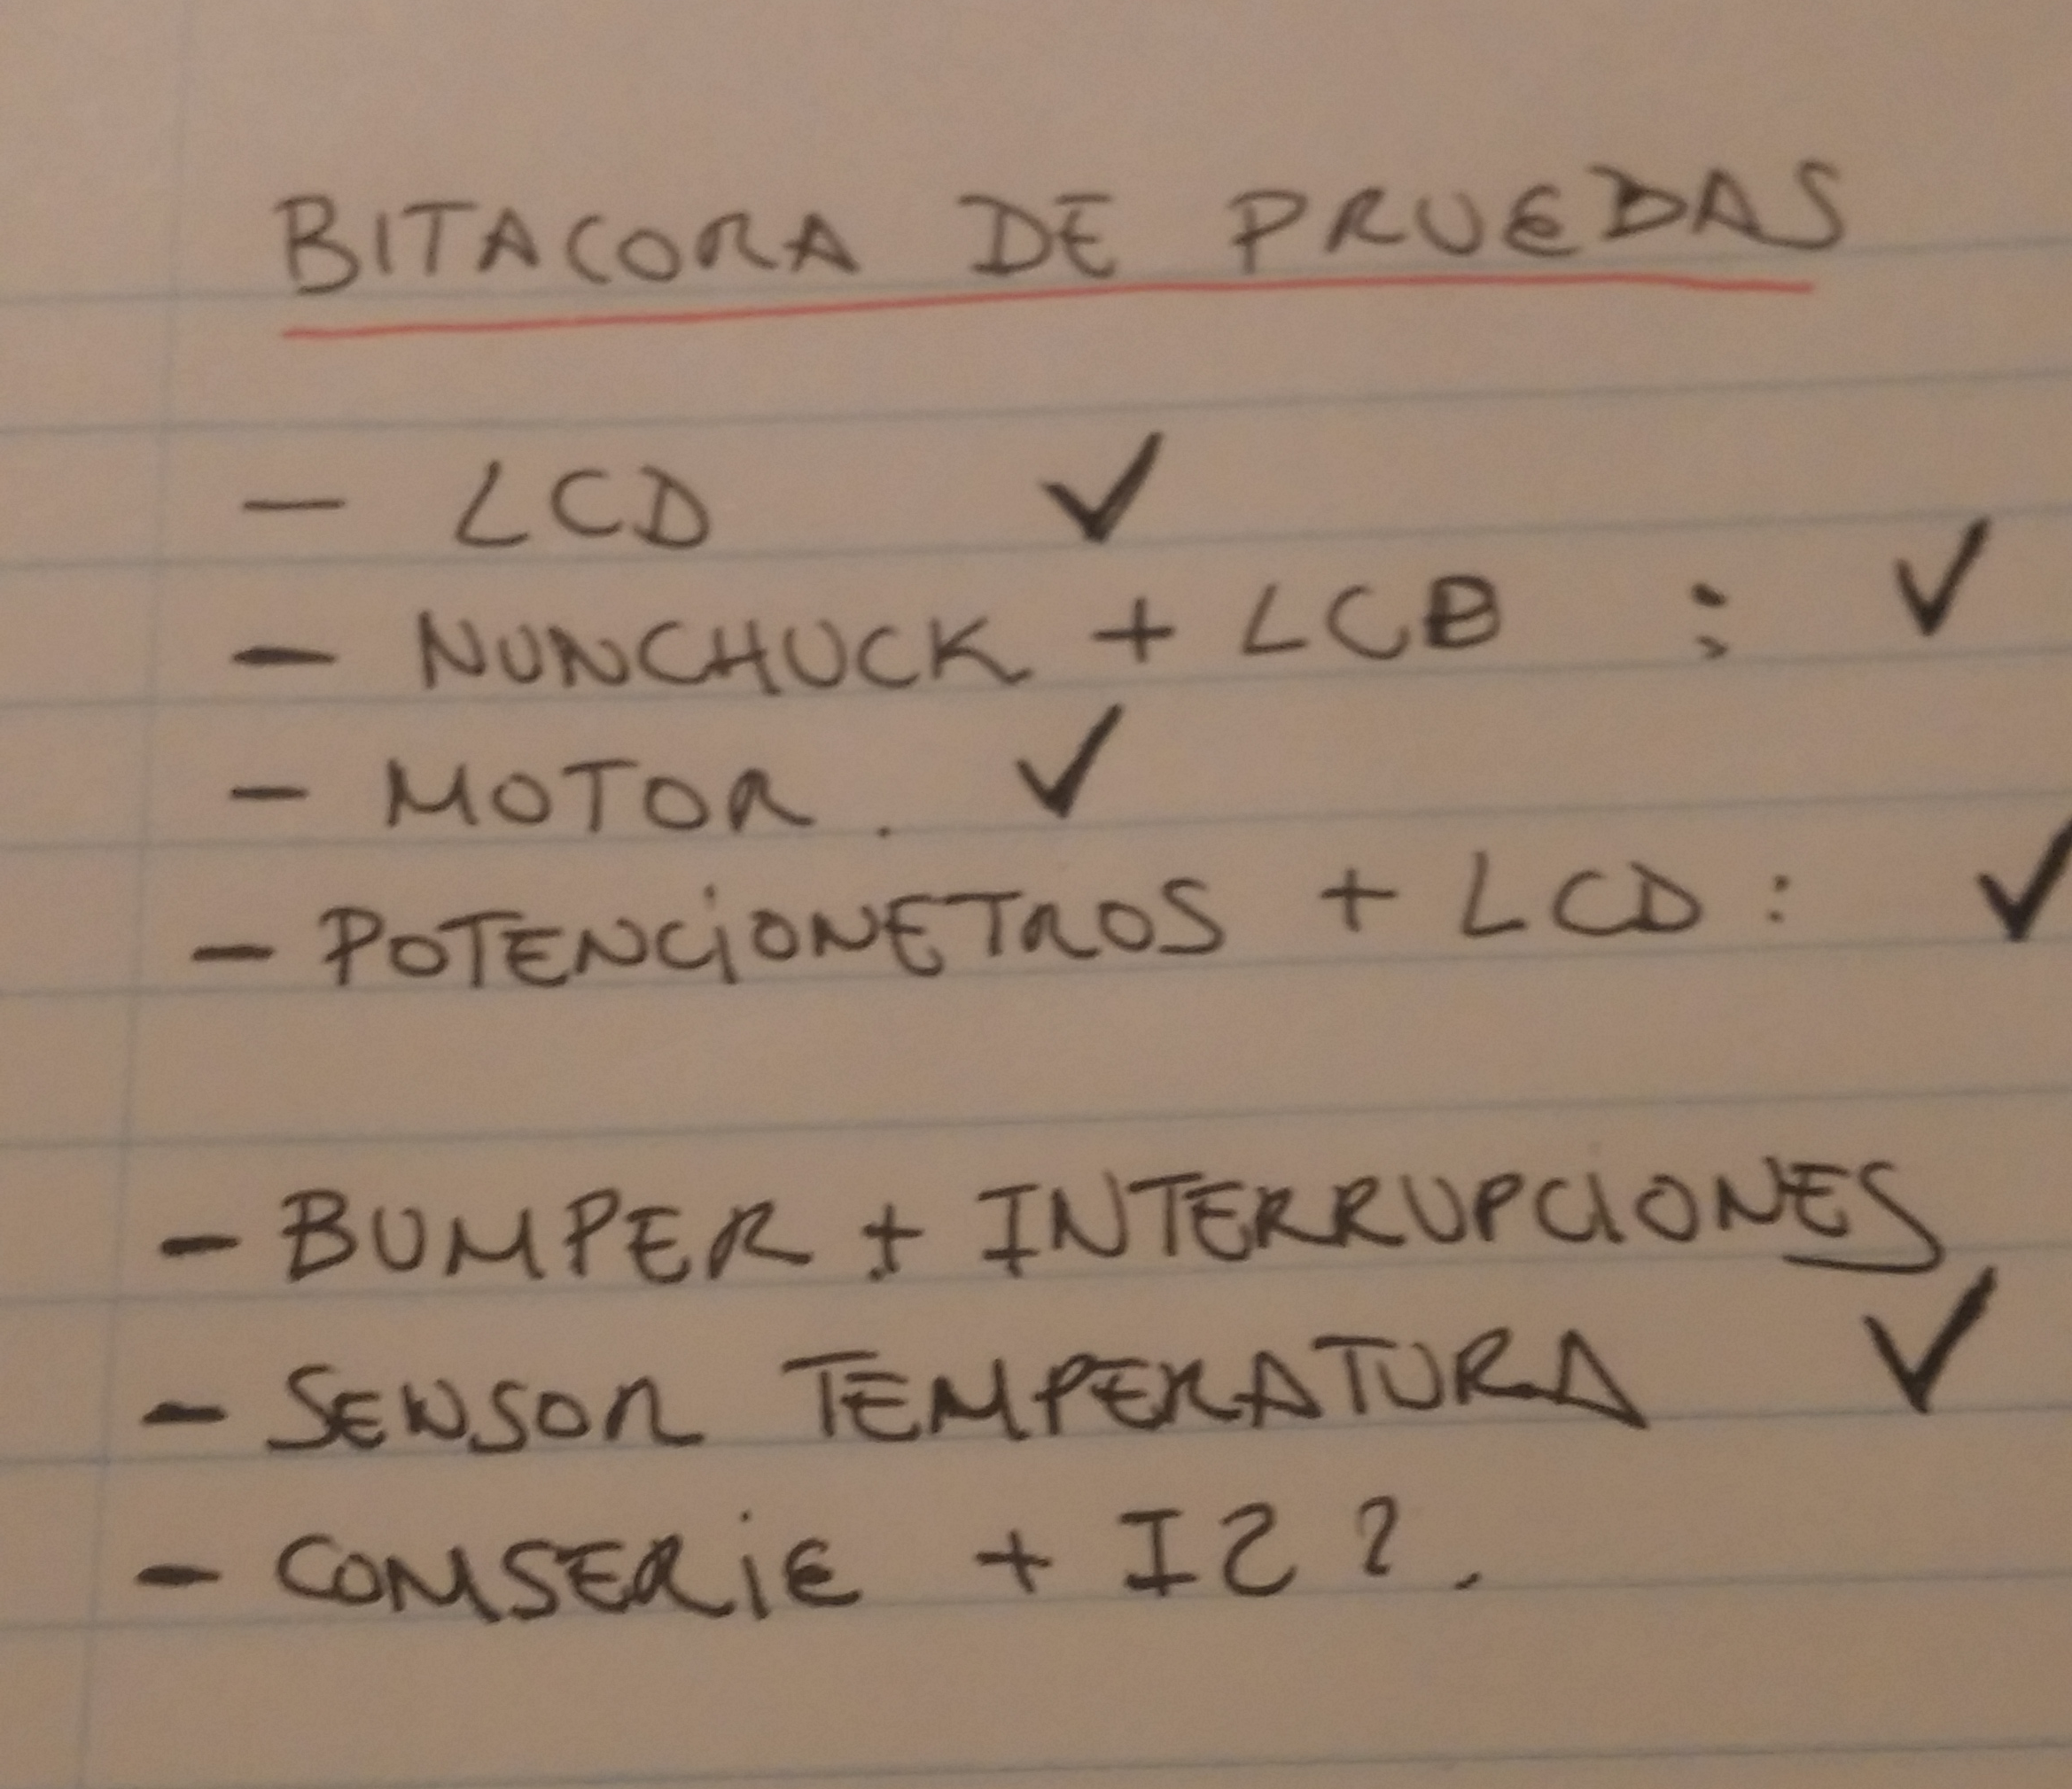 BITACORA DE PRUEBAS
- LCD ✓
- NUNCHUCK + LCD : ✓
- MOTOR. ✓
- POTENCIONETROS + LCD : ✓
- BUMPER + INTERRUPCIONES
- SENSOR TEMPERATURA ✓
- COMSERIE + I2?.